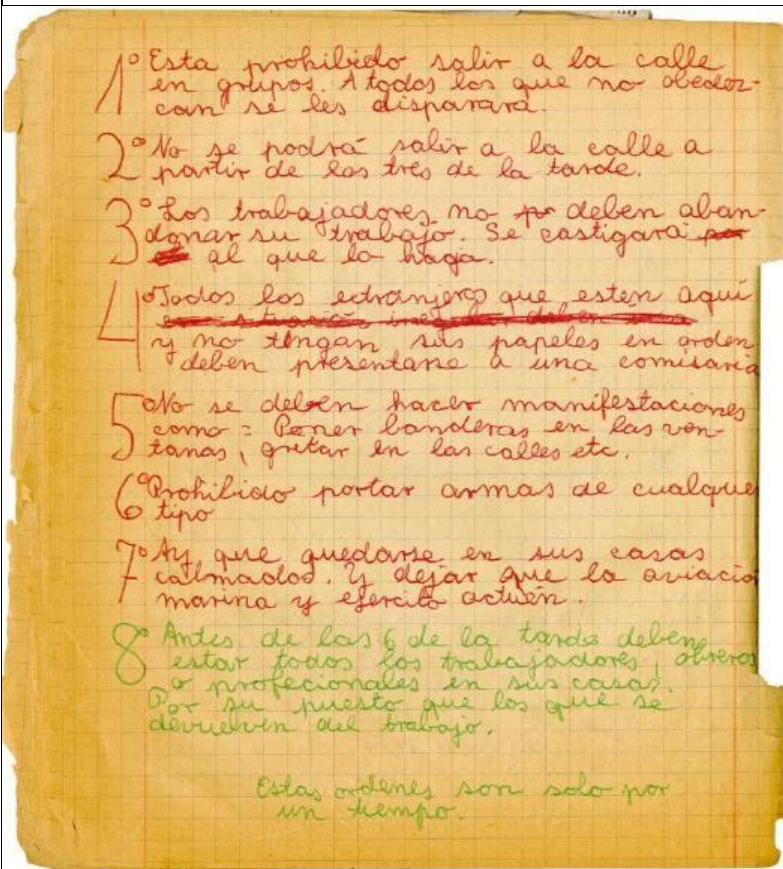 1º Esta prohibido salir a la calle
en grupos. A todos los que no obedez-
can se les disparara.
2º No se podrá salir a la calle a
partir de las tres de la tarde.
3º Los trabajadores no deben aban-
donar su trabajo. Se castigara
al que lo haga.
4º Todos los extranjeros que esten aquí
y no tengan sus papeles en orden
deben presentarse a una comisaria
5º No se deben hacer manifestaciones
como = Poner banderas en las ven-
tanas, gritar en las calles etc.
6º Prohibido portar armas de cualque
tipo
7º Ay que quedarse en sus casas
calmados. Y dejar que la aviacio
marina y ejercito actuén.
8º Antes de las 6 de la tarde deben
estar todos los trabajadores, obreros
o profecionales en sus casas.
Por su puesto que los que se
devuelven del trabajo.
Estas ordenes son solo por
un tiempo.